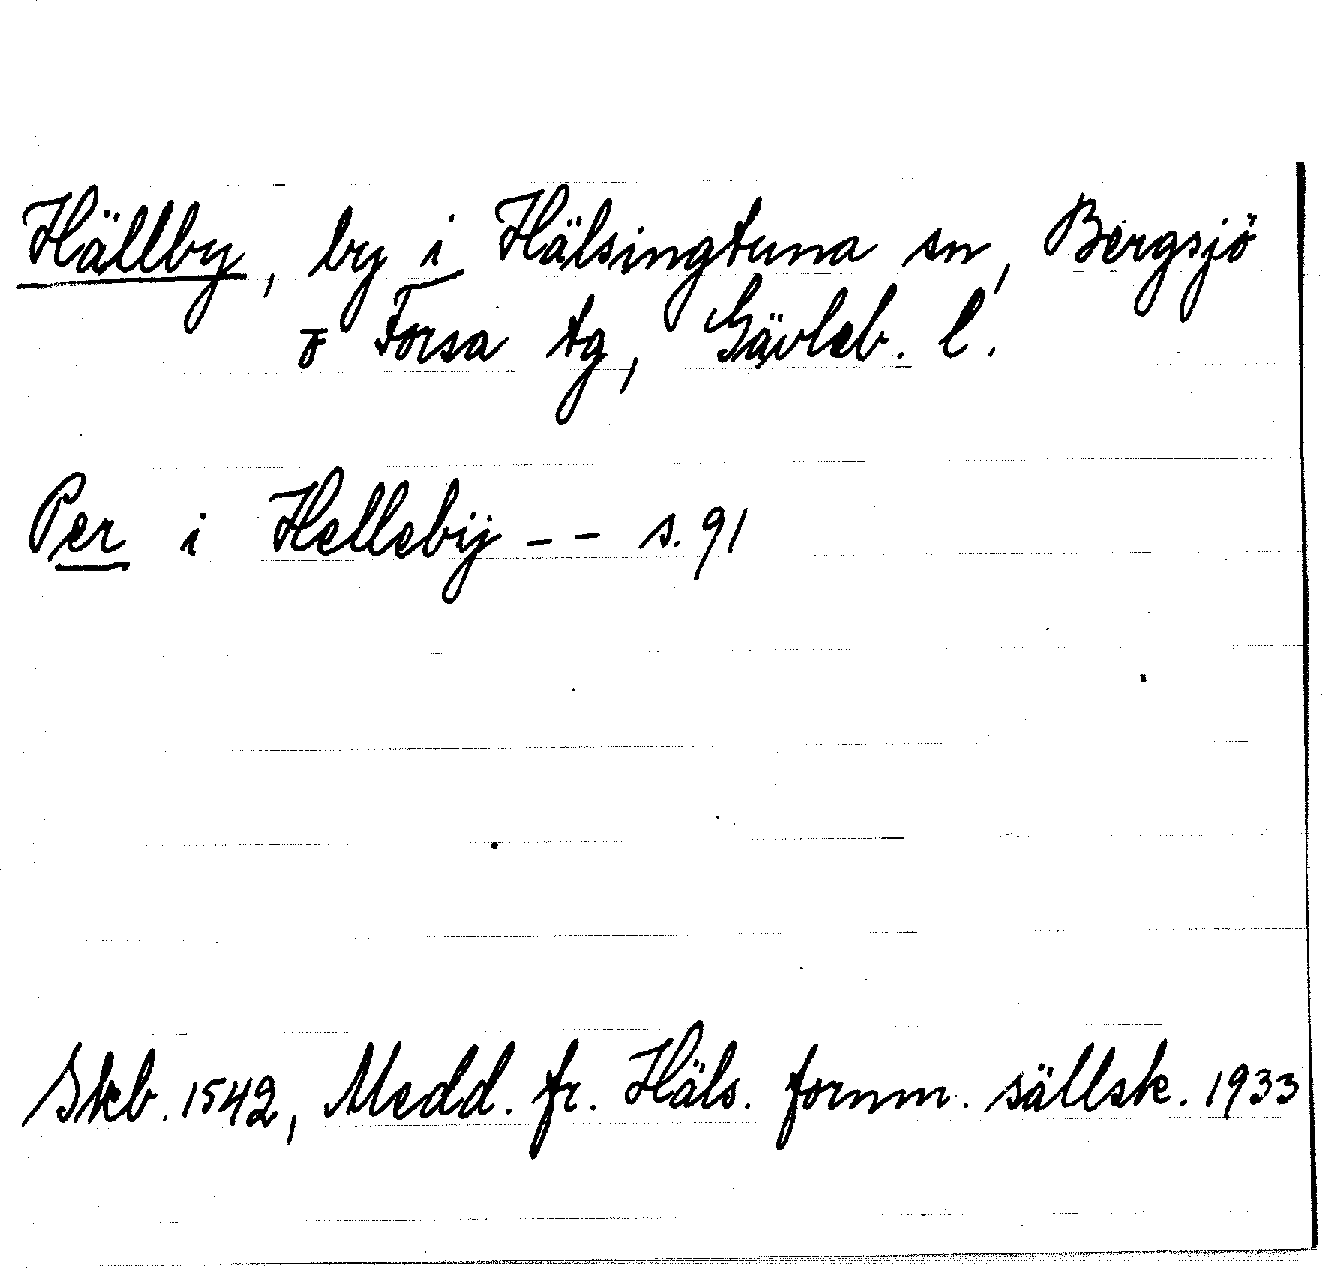 Hällby, by i Hälsingtuna sn, Bergsjö
o Forsa tg, Gävleb. l.
Per i Hellebÿ -- s. 91
Skb. 1542, Medd. fr. Häls. fornm. sällsk. 1933